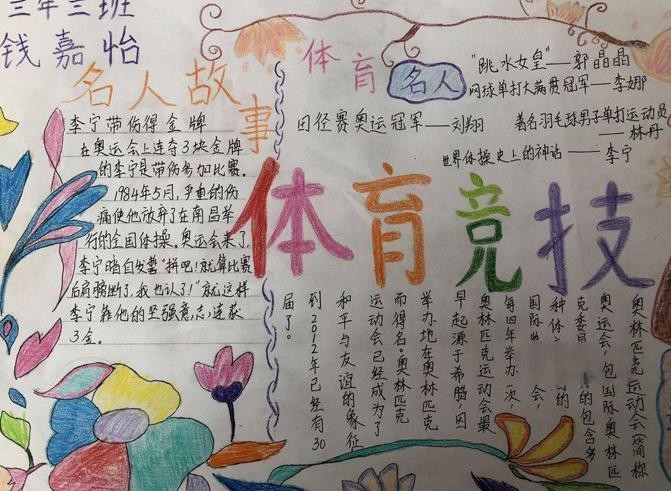 三年三班
钱嘉怡
名人故事
李宁带伤得金牌
在奥运会上连夺3块金牌
的李宁是带伤参加比赛。
1984年5月,严重的伤
痛使他放弃了在南昌举
行的全国体操。奥运会来了,
李宁暗自发誓"拼吧!就算比赛
后肩膀断了,我也认了!"就这样
李宁靠他的坚强意志,连获
3金。
体育名人
"跳水女皇"——郭晶晶
网球单打大满贯冠军——李娜
田径赛奥运冠军——刘翔
著名羽毛球男子单打运动员
——林丹
世界体操史上的神话——李宁
体育竞技
奥林匹克运动会(简称
奥运会,包国际奥林匹
克委员的包含多
种体
国际会,
每四年举办一次,
奥林匹克运动会最
早起源于希腊,因
举办地在奥林匹克
而得名。奥林匹克
运动会已经成为了
和平与友谊的象征
到2012年已经有30
届了。